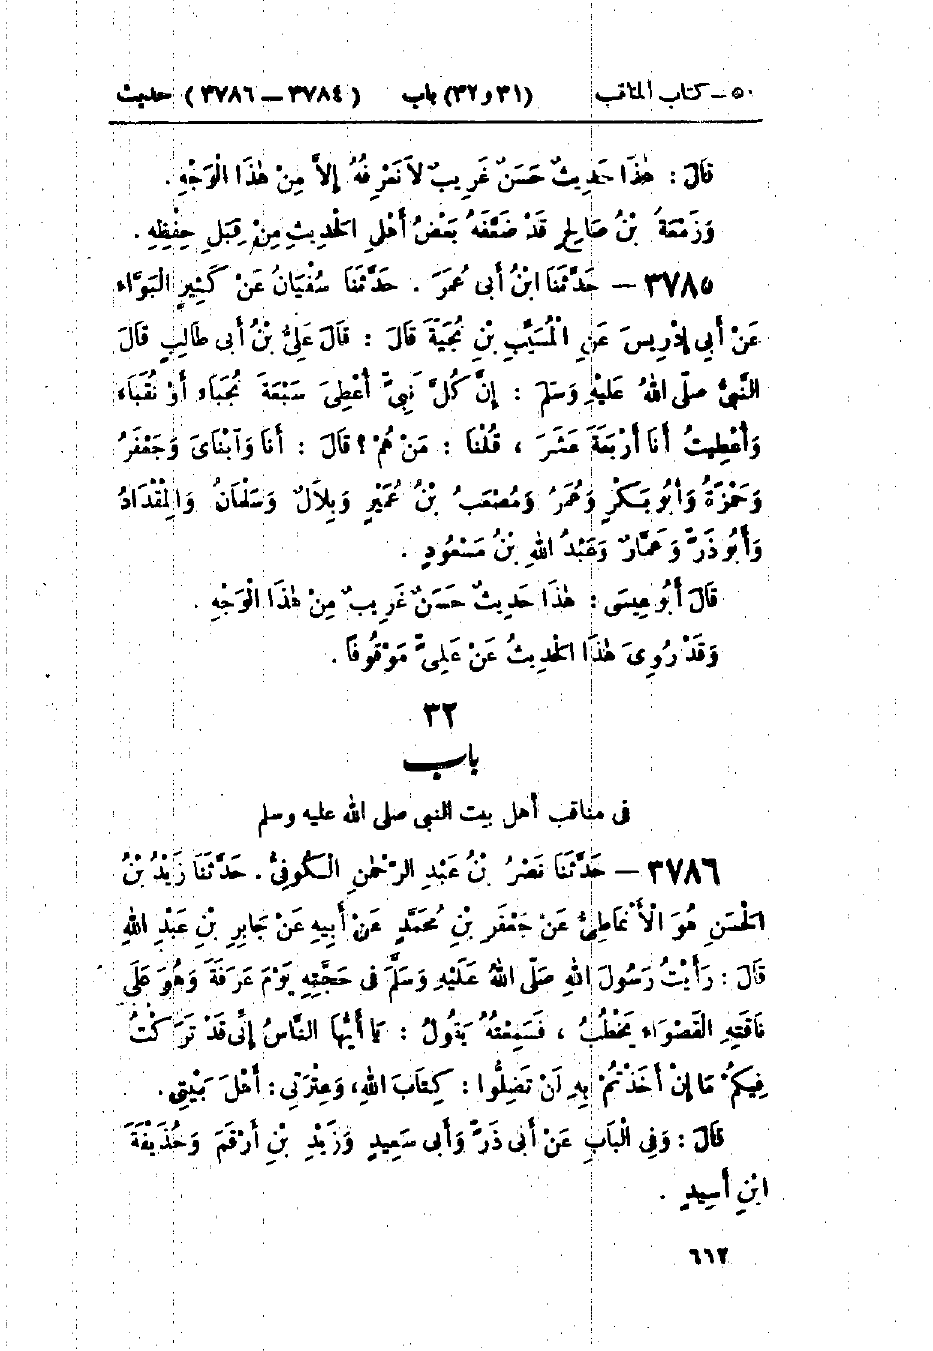 ٥٠ - كتاب المناقب (٣١ و ٣٢) باب (٣٧٨٤ — ٣٧٨٦) حديث
قَالَ : هٰذَا حَدِيثٌ حَسَنٌ غَرِيبٌ لاَ نَعْرِفُهُ إِلاَّ مِنْ هٰذَا الْوَجْهِ .
وَزَمْعَةُ بْنُ صَالِحٍ قَدْ ضَعَّفَهُ بَعْضُ أَهْلِ الحَدِيثِ مِنْ قِبَلِ حِفْظِهِ .
٣٧٨٥ — حَدَّثَنَا ابْنُ أَبِى عُمَرَ . حَدَّثَنَا سُفْيَانُ عَنْ كَثِيرٍ الْبَوَّاءِ
عَنْ أَبِي إِدْرِيسَ عَنِ الْمُسَيَّبِ بْنِ نُجَيَّةَ قَالَ : قَالَ عَلِيُّ بْنُ أَبِى طَالِبٍ قَالَ
النَّبِيُّ صلّى اللهُ عَلَيْهِ وَسَلّمَ : إِنَّ كُلَّ نَبِيٍّ أُعْطِىَ سَبْعَةَ نُجَبَاءِ أَوْ نُقَبَاءِ
وَأُعْطِيتُ أَنَا أَرْبَعَةَ عَشَرَ ، قُلْنَا : مَنْ هُمْ ؟ قَالَ : أَنَا وَابْنَاىَ وَجَعْفَرُ
وَحَمْزَةُ وَأَبُو بَكْرٍ وَعُمَرُ وَمُصْعَبُ بْنُ عُمَيْرٍ وَبِلاَلٌ وَسَلْمَانُ وَالْمِقْدَادُ
وَأَبُو ذَرٍّ وَعَمَّارٌ وَعَبْدُ اللهِ بْنُ مَسْعُودٍ .
قَالَ أَبُو عِيسَى : هٰذَا حَدِيثٌ حَسَنٌ غَرِيبٌ مِنْ هٰذَا الْوَجْهِ .
وَقَدْ رُوِىَ هٰذَا الحَدِيثُ عَنْ عَلِىٍّ مَوْقُوفًا .
٣٢
باب
فى مناقب أهل بيت النبى صلى الله عليه وسلم
٣٧٨٦ — حَدَّثَنَا نَصْرُ بْنُ عَبْدِ الرَّحْمٰنِ الْكُوفِىُّ . حَدَّثَنَا زَيْدُ بْنُ
الحَسَنِ هُوَ الْأَنْمَاطِىُّ عَنْ جَعْفَرِ بْنِ مُحَمَّدٍ عَنْ أَبِيهِ عَنْ جَابِرِ بْنِ عَبْدِ اللهِ
قَالَ : رَأَيْتُ رَسُولَ اللهِ صَلّى اللهُ عَلَيْهِ وَسَلَّمَ فى حَجَّتِهِ يَوْمَ عَرَفَةَ وَهُوَ عَلَى
نَاقَتِهِ الْقَصْوَاءِ يَخْطُبُ ، فَسَمِعْتُهُ يَقُولُ : يَا أَيُّهَا النَّاسُ إِنِّى قَدْ تَرَكْتُ
فِيكُمْ مَا إِنْ أَخَذْتُمْ بِهِ لَنْ تَضِلُّوا : كِتَابَ اللهِ، وَعِتْرَتِي : أَهْلَ بَيْتِى .
قَالَ : وَفِى الْبَابِ عَنْ أَبِى ذَرٍّ وَأَبِى سَعِيدٍ وَزَيْدِ بْنِ أَرْقَمَ وَحُذَيْفَةَ
ابْنِ أَسِيدٍ .
٦٦٢